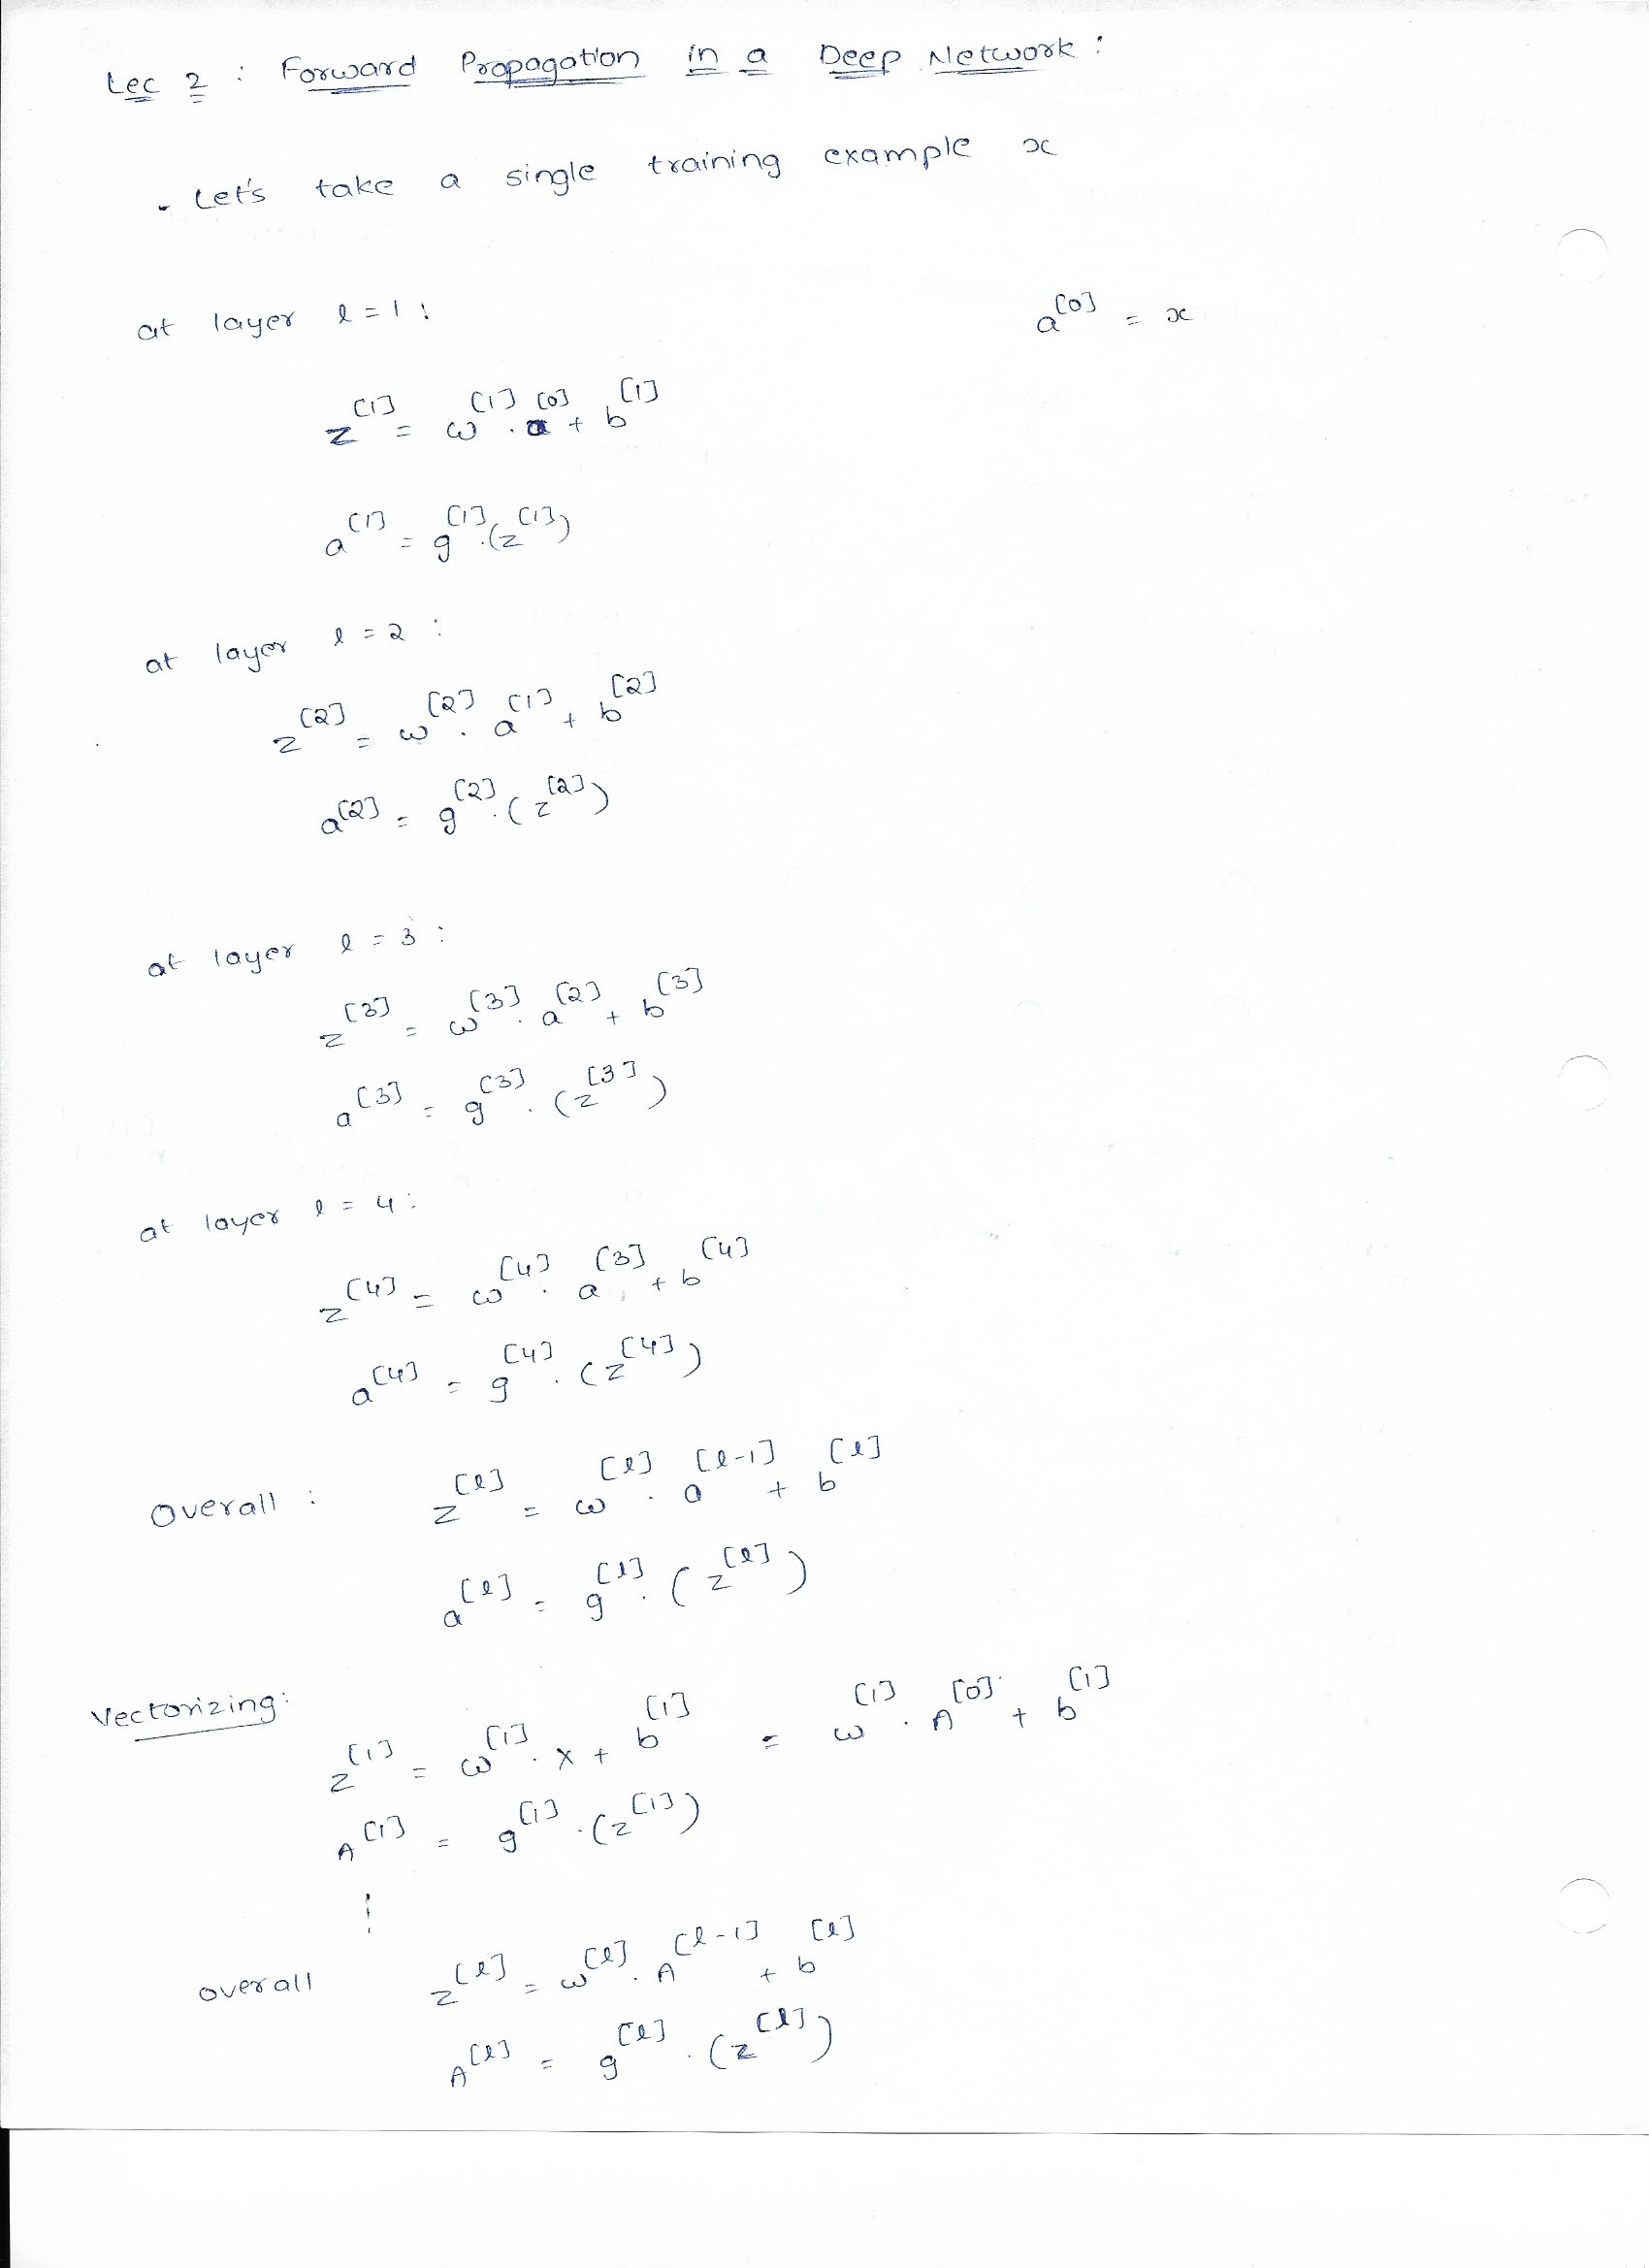 Lec 2 : Forward Propagation in a Deep Network :
- Let's take a single training example x
at layer l = 1 : a^[0] = x
z^[1] = w^[1] . a^[0] + b^[1]
a^[1] = g^[1] . (z^[1])
at layer l = 2 :
z^[2] = w^[2] . a^[1] + b^[2]
a^[2] = g^[2] . (z^[2])
at layer l = 3 :
z^[3] = w^[3] . a^[2] + b^[3]
a^[3] = g^[3] . (z^[3])
at layer l = 4 :
z^[4] = w^[4] . a^[3] + b^[4]
a^[4] = g^[4] . (z^[4])
Overall : z^[l] = w^[l] . a^[l-1] + b^[l]
a^[l] = g^[l] . (z^[l])
Vectorizing:
z^[1] = w^[1] . X + b^[1] = w^[1] . A^[0] + b^[1]
A^[1] = g^[1] . (z^[1])
⋮
overall z^[l] = w^[l] . A^[l-1] + b^[l]
A^[l] = g^[l] . (z^[l])